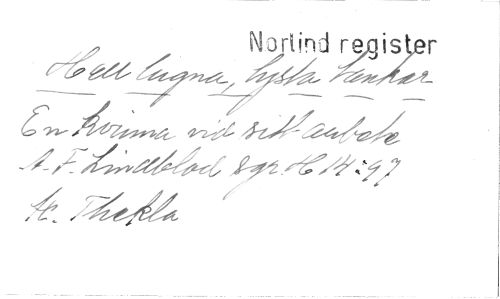 Norlind register
Hell lugna, tysta tankar
En kvinna vid sitt arbete
A. F. Lindblad sgr H 14:97
Thekla